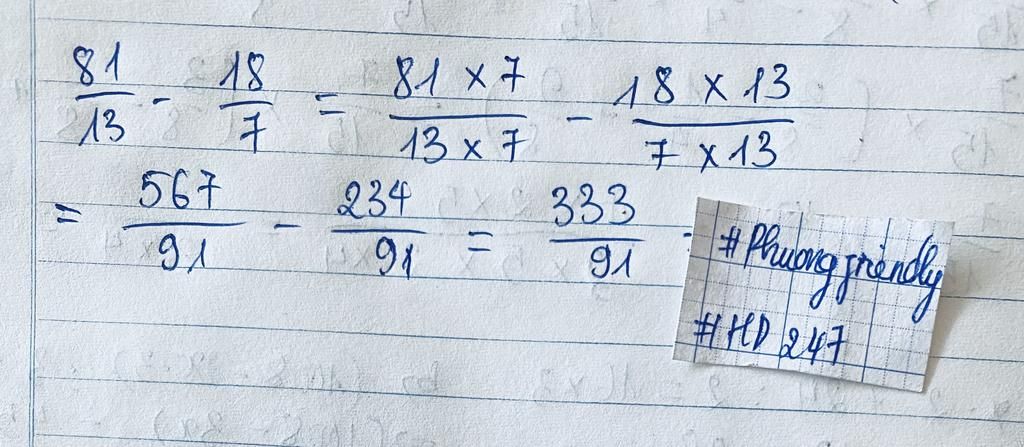 81/13 - 18/7 = 81 x 7/13 x 7 - 18 x 13/7 x 13
= 567/91 - 234/91 = 333/91 -
#Phuongfriendly
#HD 247